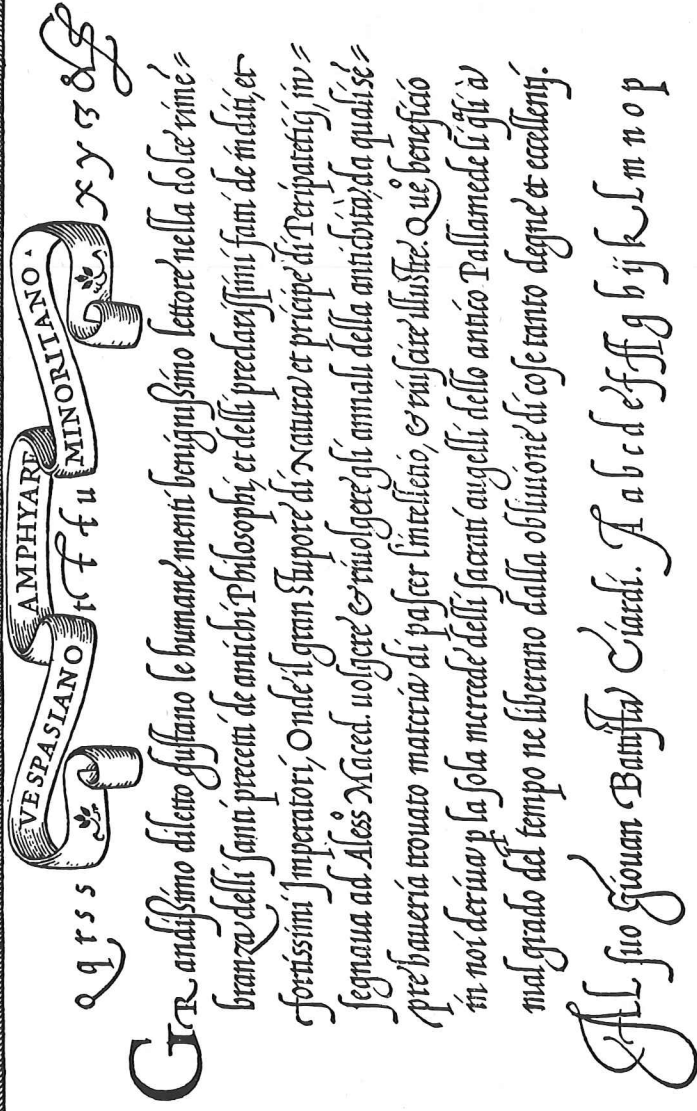 VESPASIANO AMPHYAREO MINORITANO .
q q r s s t t t u x y z &
GRandißimo diletto gustano le humane menti benignißimo lettore nella dolce rime=
branza delli santi precetti de antichi Philosophi, et delli preclarissimi fatti de inditi, et
fortissimi Imperatori, Onde il gran stupore di Natura et prīcipe di Peripatetici, in=
segnaua ad Aless Maced. uolgere & riuolgere gli annali della antichità, da quali sē=
pre haueria trouato materia di pascer l'intelletto, & riuscire illustre. Que beneficio
in noi deriua p la sola mercede delli sacrati augelli dello antico Pallamede li q̄li à
mal grado del tempo ne liberano dalla obliuione di cose tanto degne et eccellenti.
Al suo Giouan Battista Ciardi. A a b c d e f ff g h ij k l m n o p